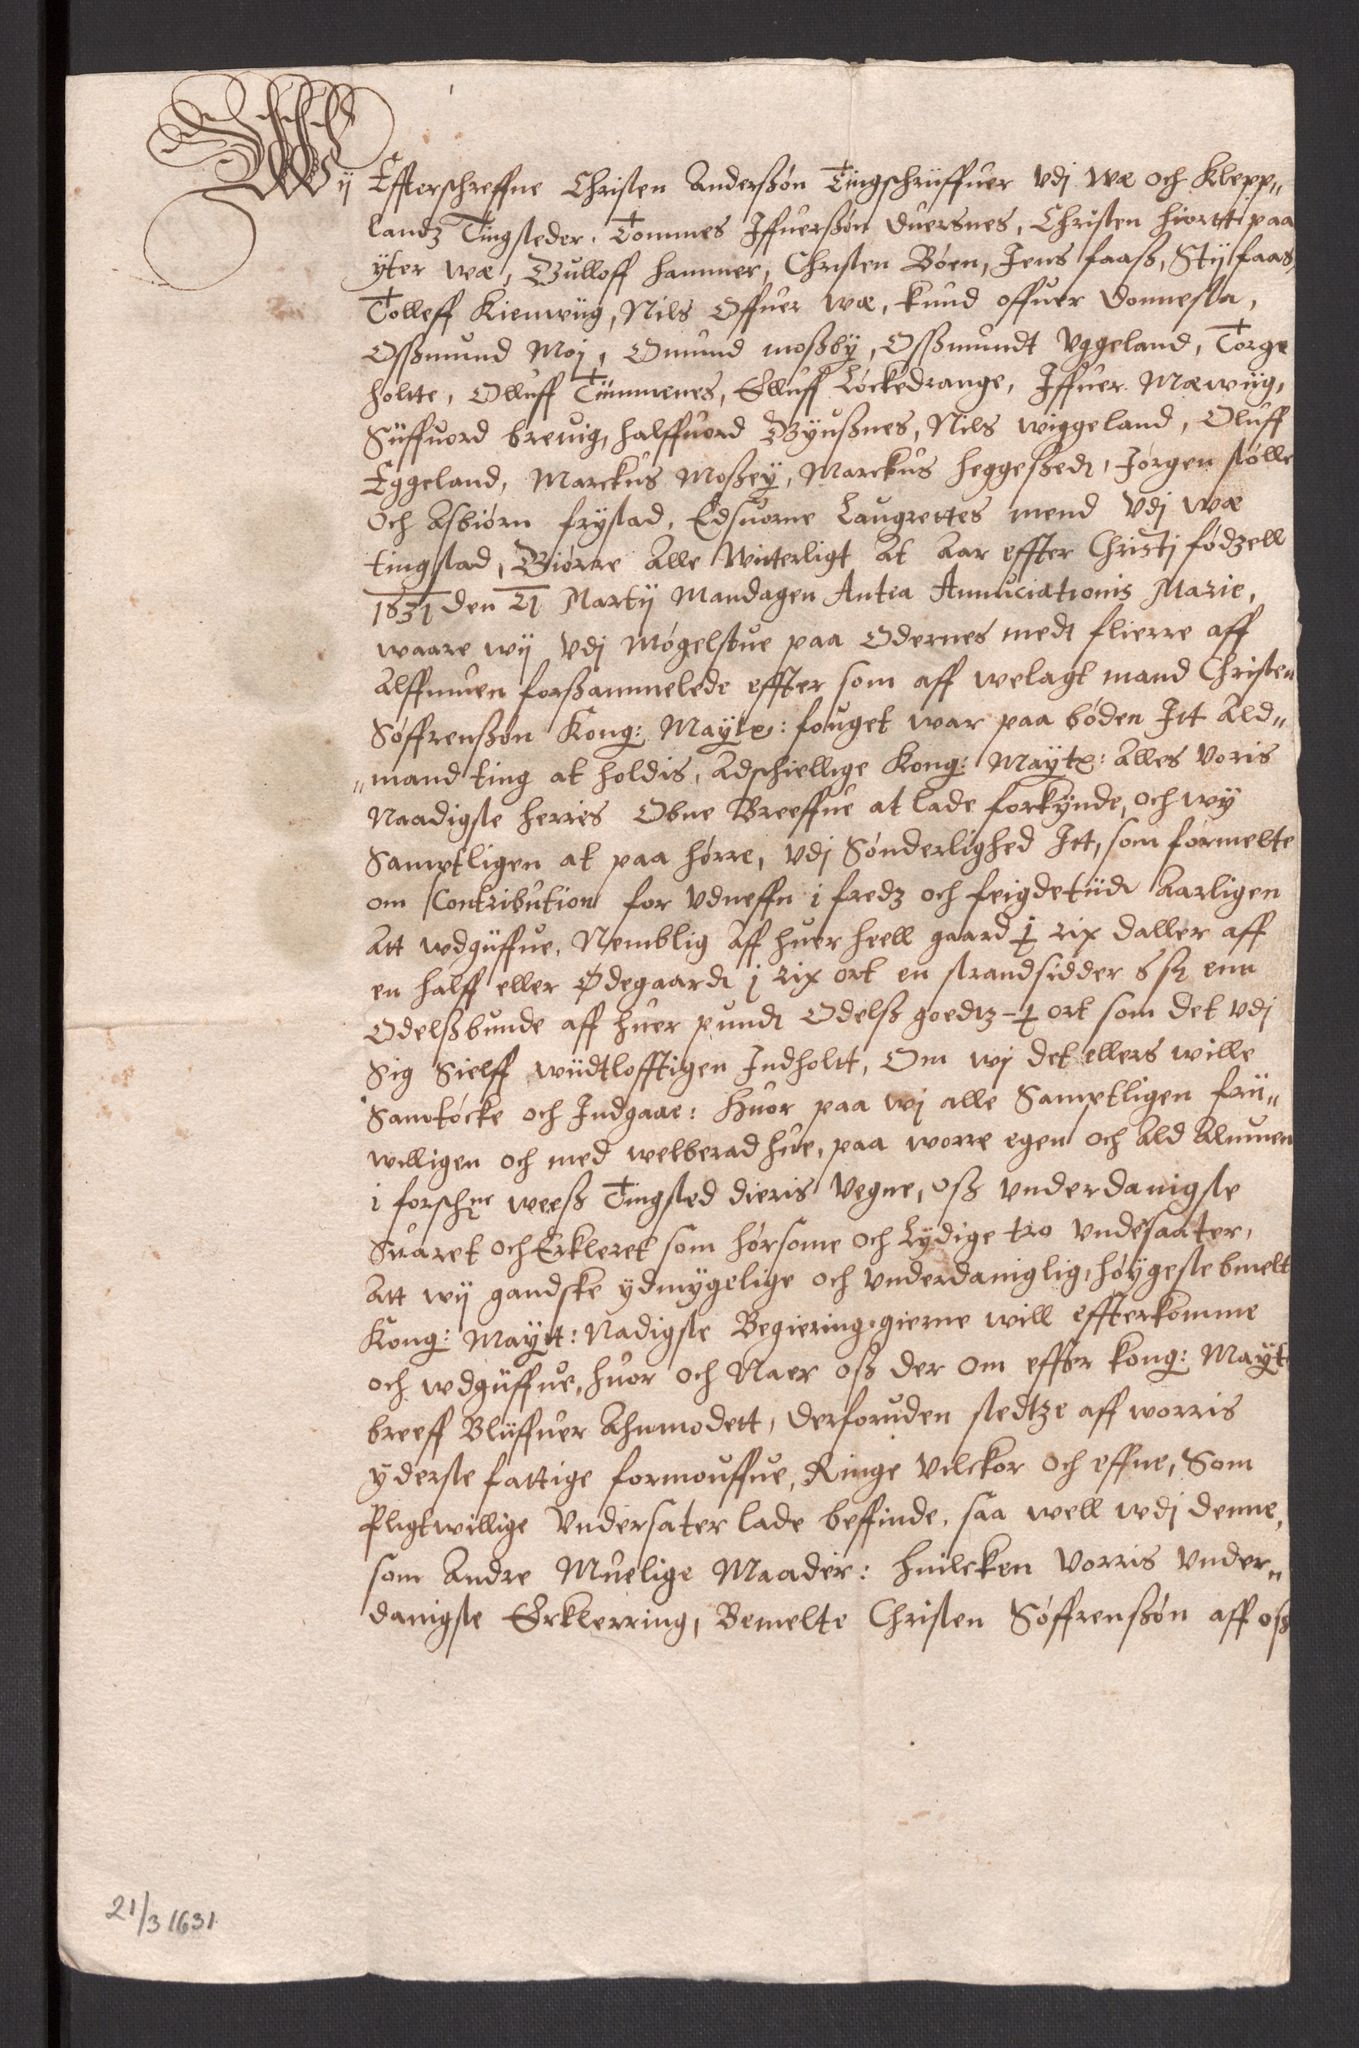 Wij Effterschreffne Christen Anderßøn Tingschriiffuer Vdj Wæ och Klepp„
landz Tingsteder. Tommes Iffuerßøn Duersnes, Christen Hiortt paa
ÿter Wæ, Gulloff Hammer, Christen Bøen, Jens faaß, Stÿ faas,
Tolleff Kienwiig, Nils Offuer Wæ, Knud offuer Donnesta,
Oßmund Moj, Omund moßbÿ, Oßmundt Vggeland, Torge
Holtte, Olluff Timmenes, Elluff Lockedrange, Iffuer Mæwiig,
Siiffuord brevig, Halffuord Bÿußnes, Nils Wiggeland, Oluff
Eggeland, Marckus Moßeÿ, Marckus Heggeßedt, Jørgen støllt
Och Asbiørn frÿstad, Edsuorne Laugrettes mend Vdj Wæ
tingstad, Giørre Alle Witterligt At Aar effter Christj fødzell
1631 den 21 Martij Mandagen Antea Annuciationis Marie,
waare wij Vdj Møgelstue paa Odernes medt flierre aff
Alffmuen forßammelede effter som aff welagt mand Christen
Søffrenßøn Kong: Maÿtz: fouget war paa bøden Itt Ald„
„mand ting at holdis, Adschiellige Kong: Maÿtz: Alles Voris
Naadigste Herris Obne Breeffue at lade forkÿnde, och wÿ
Samptligen at paa hørre, Vdj Sønderlighed Itt, som formelte
om Contribution for Vdneffn i fredz och feigdetiidt Aarligen
Att wdgiiffue, Nemblig Aff huer heell gaard j rix daller aff
en halff eller Ødegaardt j rix ort en strandsidder 6 sk enn
Odelßbunde aff huer pundt Odelß goedtz - j ort som det vdj
Sig Sielff wiidtlofftigen Indholtt, Om wj det ellers wille
Samtøcke och Indgaae: Huor paa wj alle Samptligen frii„
willigen och med welberad hue, paa worre egen och Ald Almuen
i forschne weeß Tingsted dieris Vegne, oß vnderdanigste
Suaret och Erkleret som hørsome och Lÿdige tro Vndesaater,
Att wij gandske ydmÿgelige och Vnderdaniglig, høÿgeste bmelt
Kong: Maÿtt: Nadigste Begiering gierne will effterkomme
och wdgiiffue, huor och Naer oß der om effter Kong: Maÿt
breeff Bliiffuer Ahnmodett, derforuden stedtze aff worris
yderste fattige formouffue, Ringe Vilckor och effne, Som
Pligtwillige Vndersater lade beffinde, saa well wdj denne,
som Andre Muelige Maader: Huilcken Vorris Vnder„
danigste Erklerring, Bemelte Christen Søffrenßøn aff oß
21/3 1631